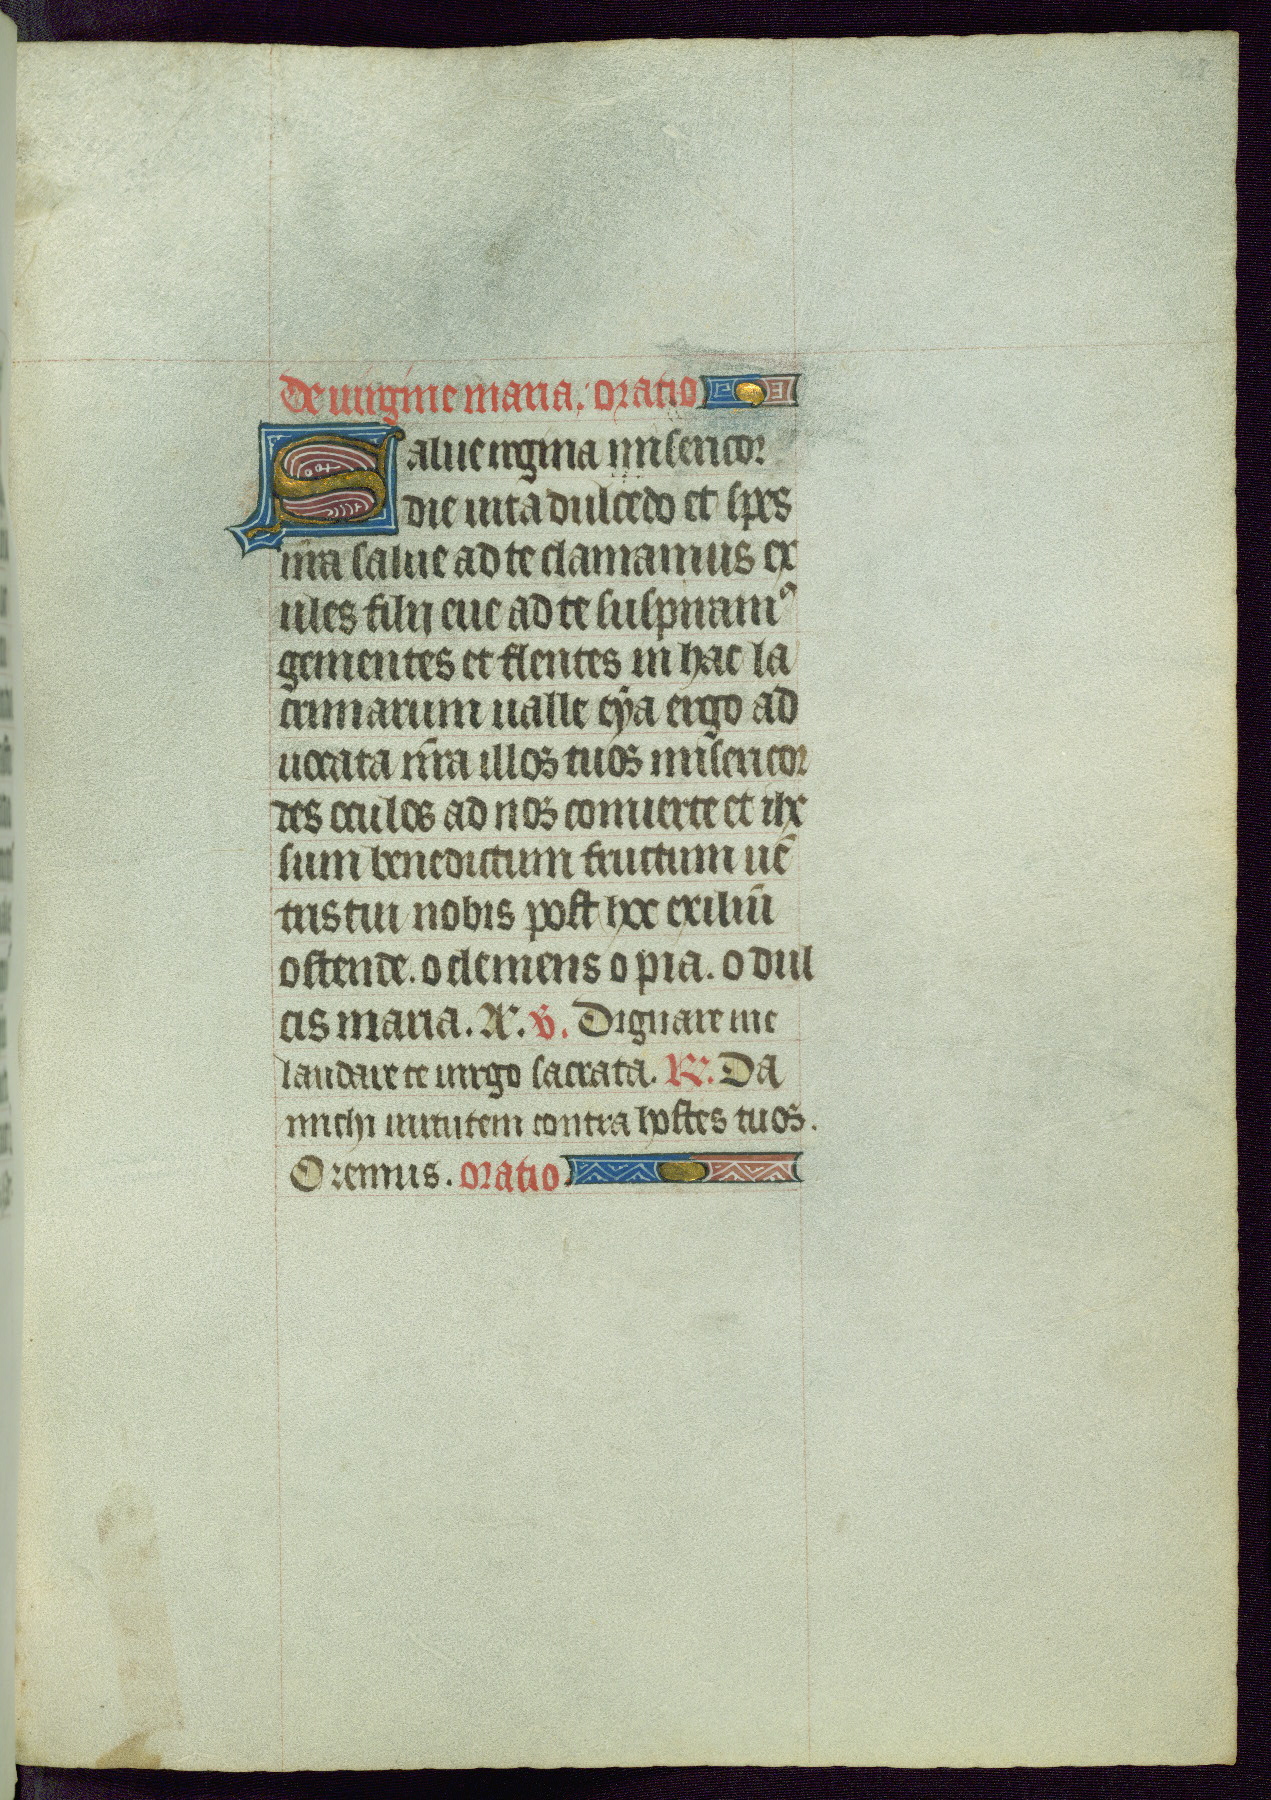 De uirgine maria. oratio
Salue regina misericor
die uita dulcedo et spes
nr̄a salue ad te clamamus ex
ules filij eue ad te suspiramꝰ
gementes et flentes in hac la
crimarum ualle eya ergo ad
uocata nr̄a illos tuos misericor
des oculos ad nos conuerte et ihe
sum benedictum fructum uē
tris tui nobis post hoc exiliū
ostende. o clemens o pia. o dul
cis maria. A. ℣. Dignare me
laudare te uirgo sacrata. ℟. Da
michi uirtutem contra hostes tuos.
Oremus. oratio